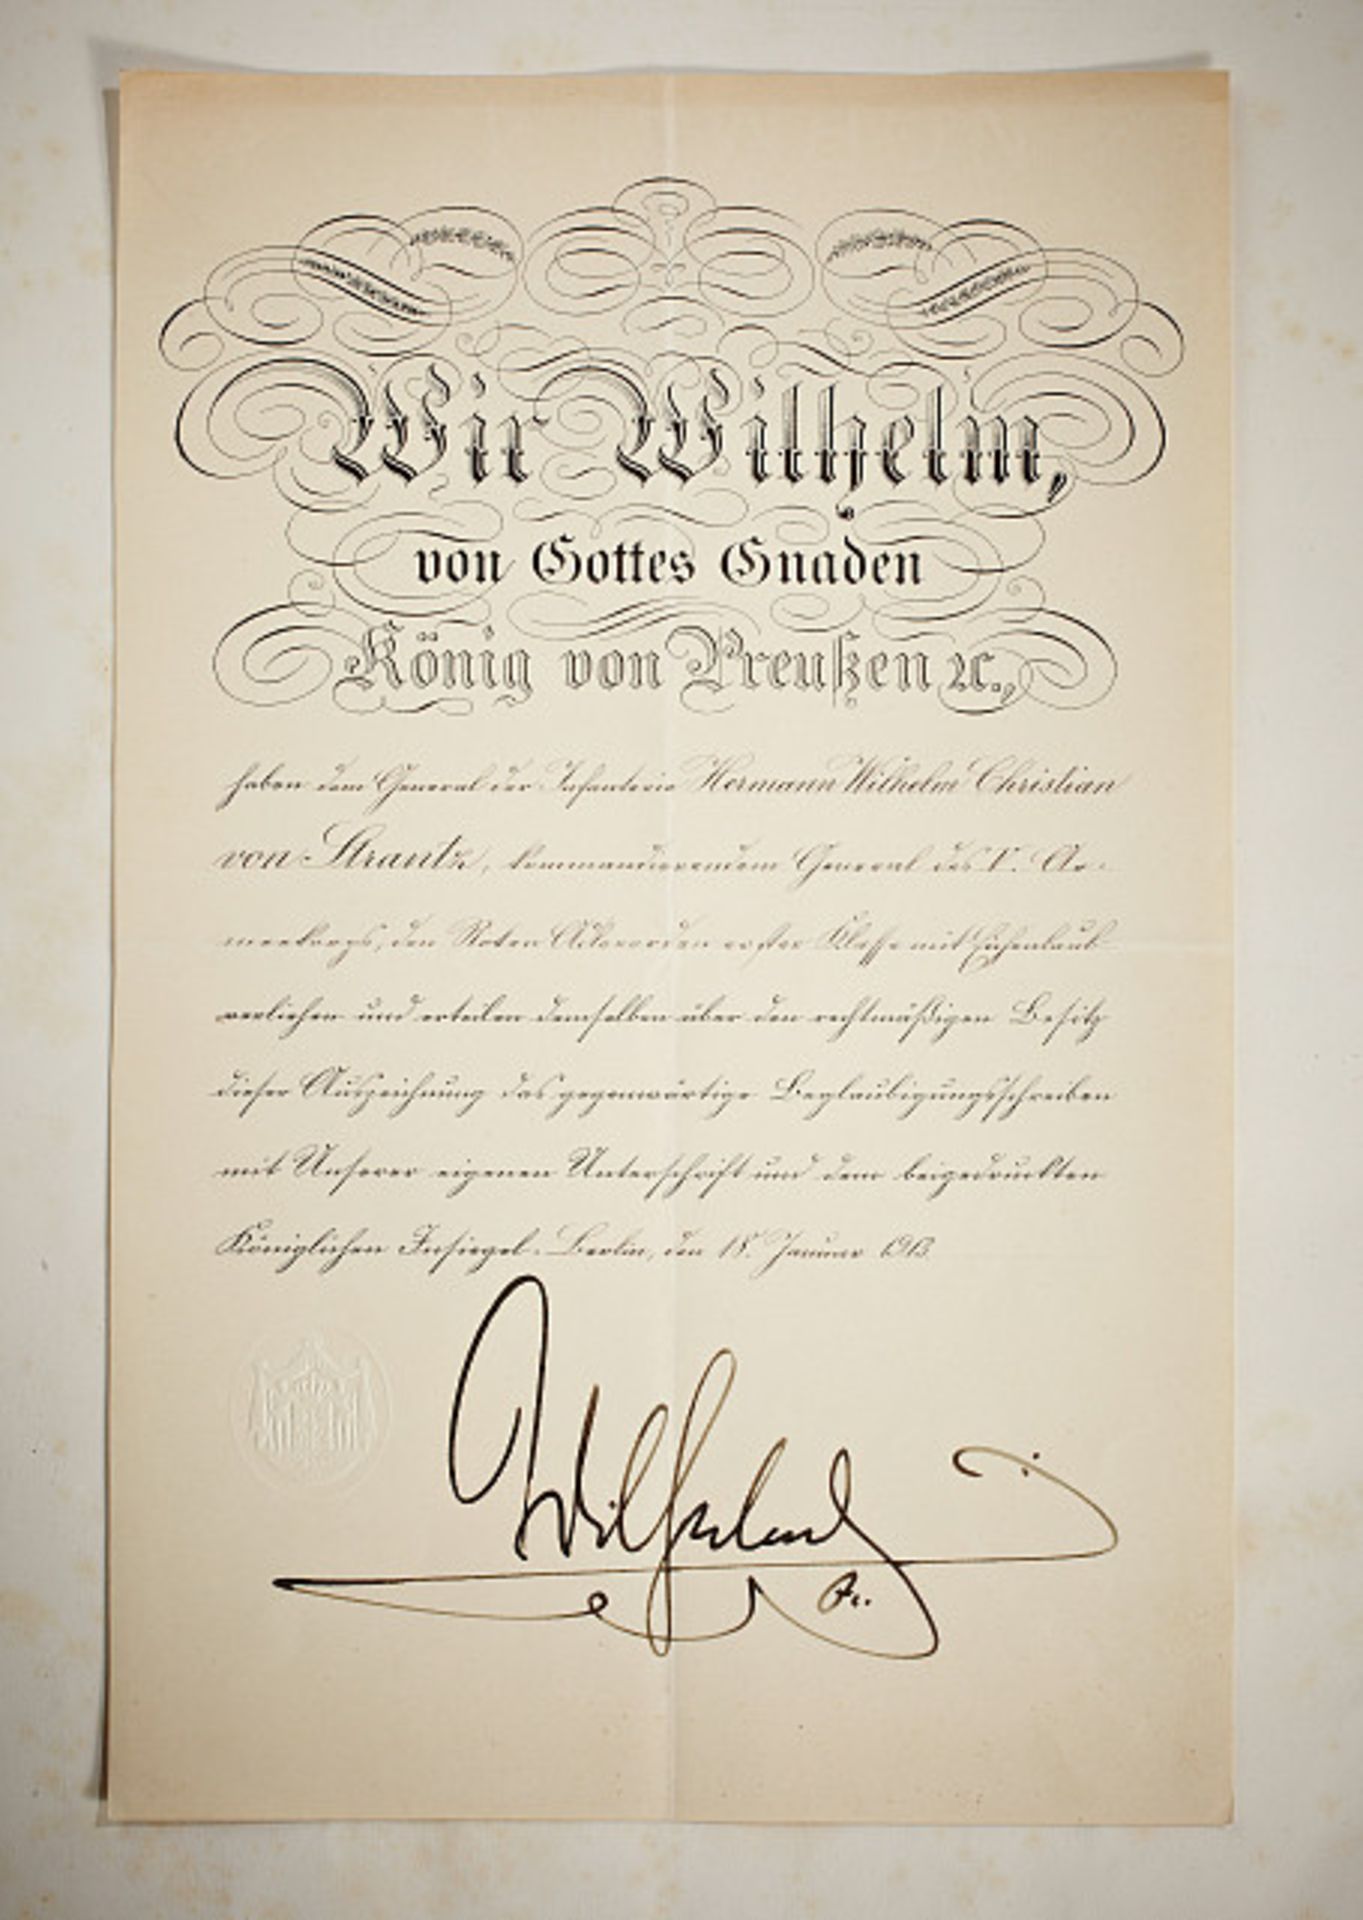 Wir Wilhelm,
von Gottes Gnaden
König von Preußen ꝛc.,
haben dem General der Infanterie Hermann Wilhelm Christian
von Strantz, kommandierendem General des V. Ar-
meekorps, den Roten Adlerorden erster Klasse mit Eichenlaub
verliehen und erteilen demselben über den rechtmäßigen Besitz
dieser Auszeichnung das gegenwärtige Beglaubigungsschreiben
mit Unserer eigenen Unterschrift und dem beigedruckten
Königlichen Insiegel. Berlin, den 18. Januar 1913.
Wilhelm
R.